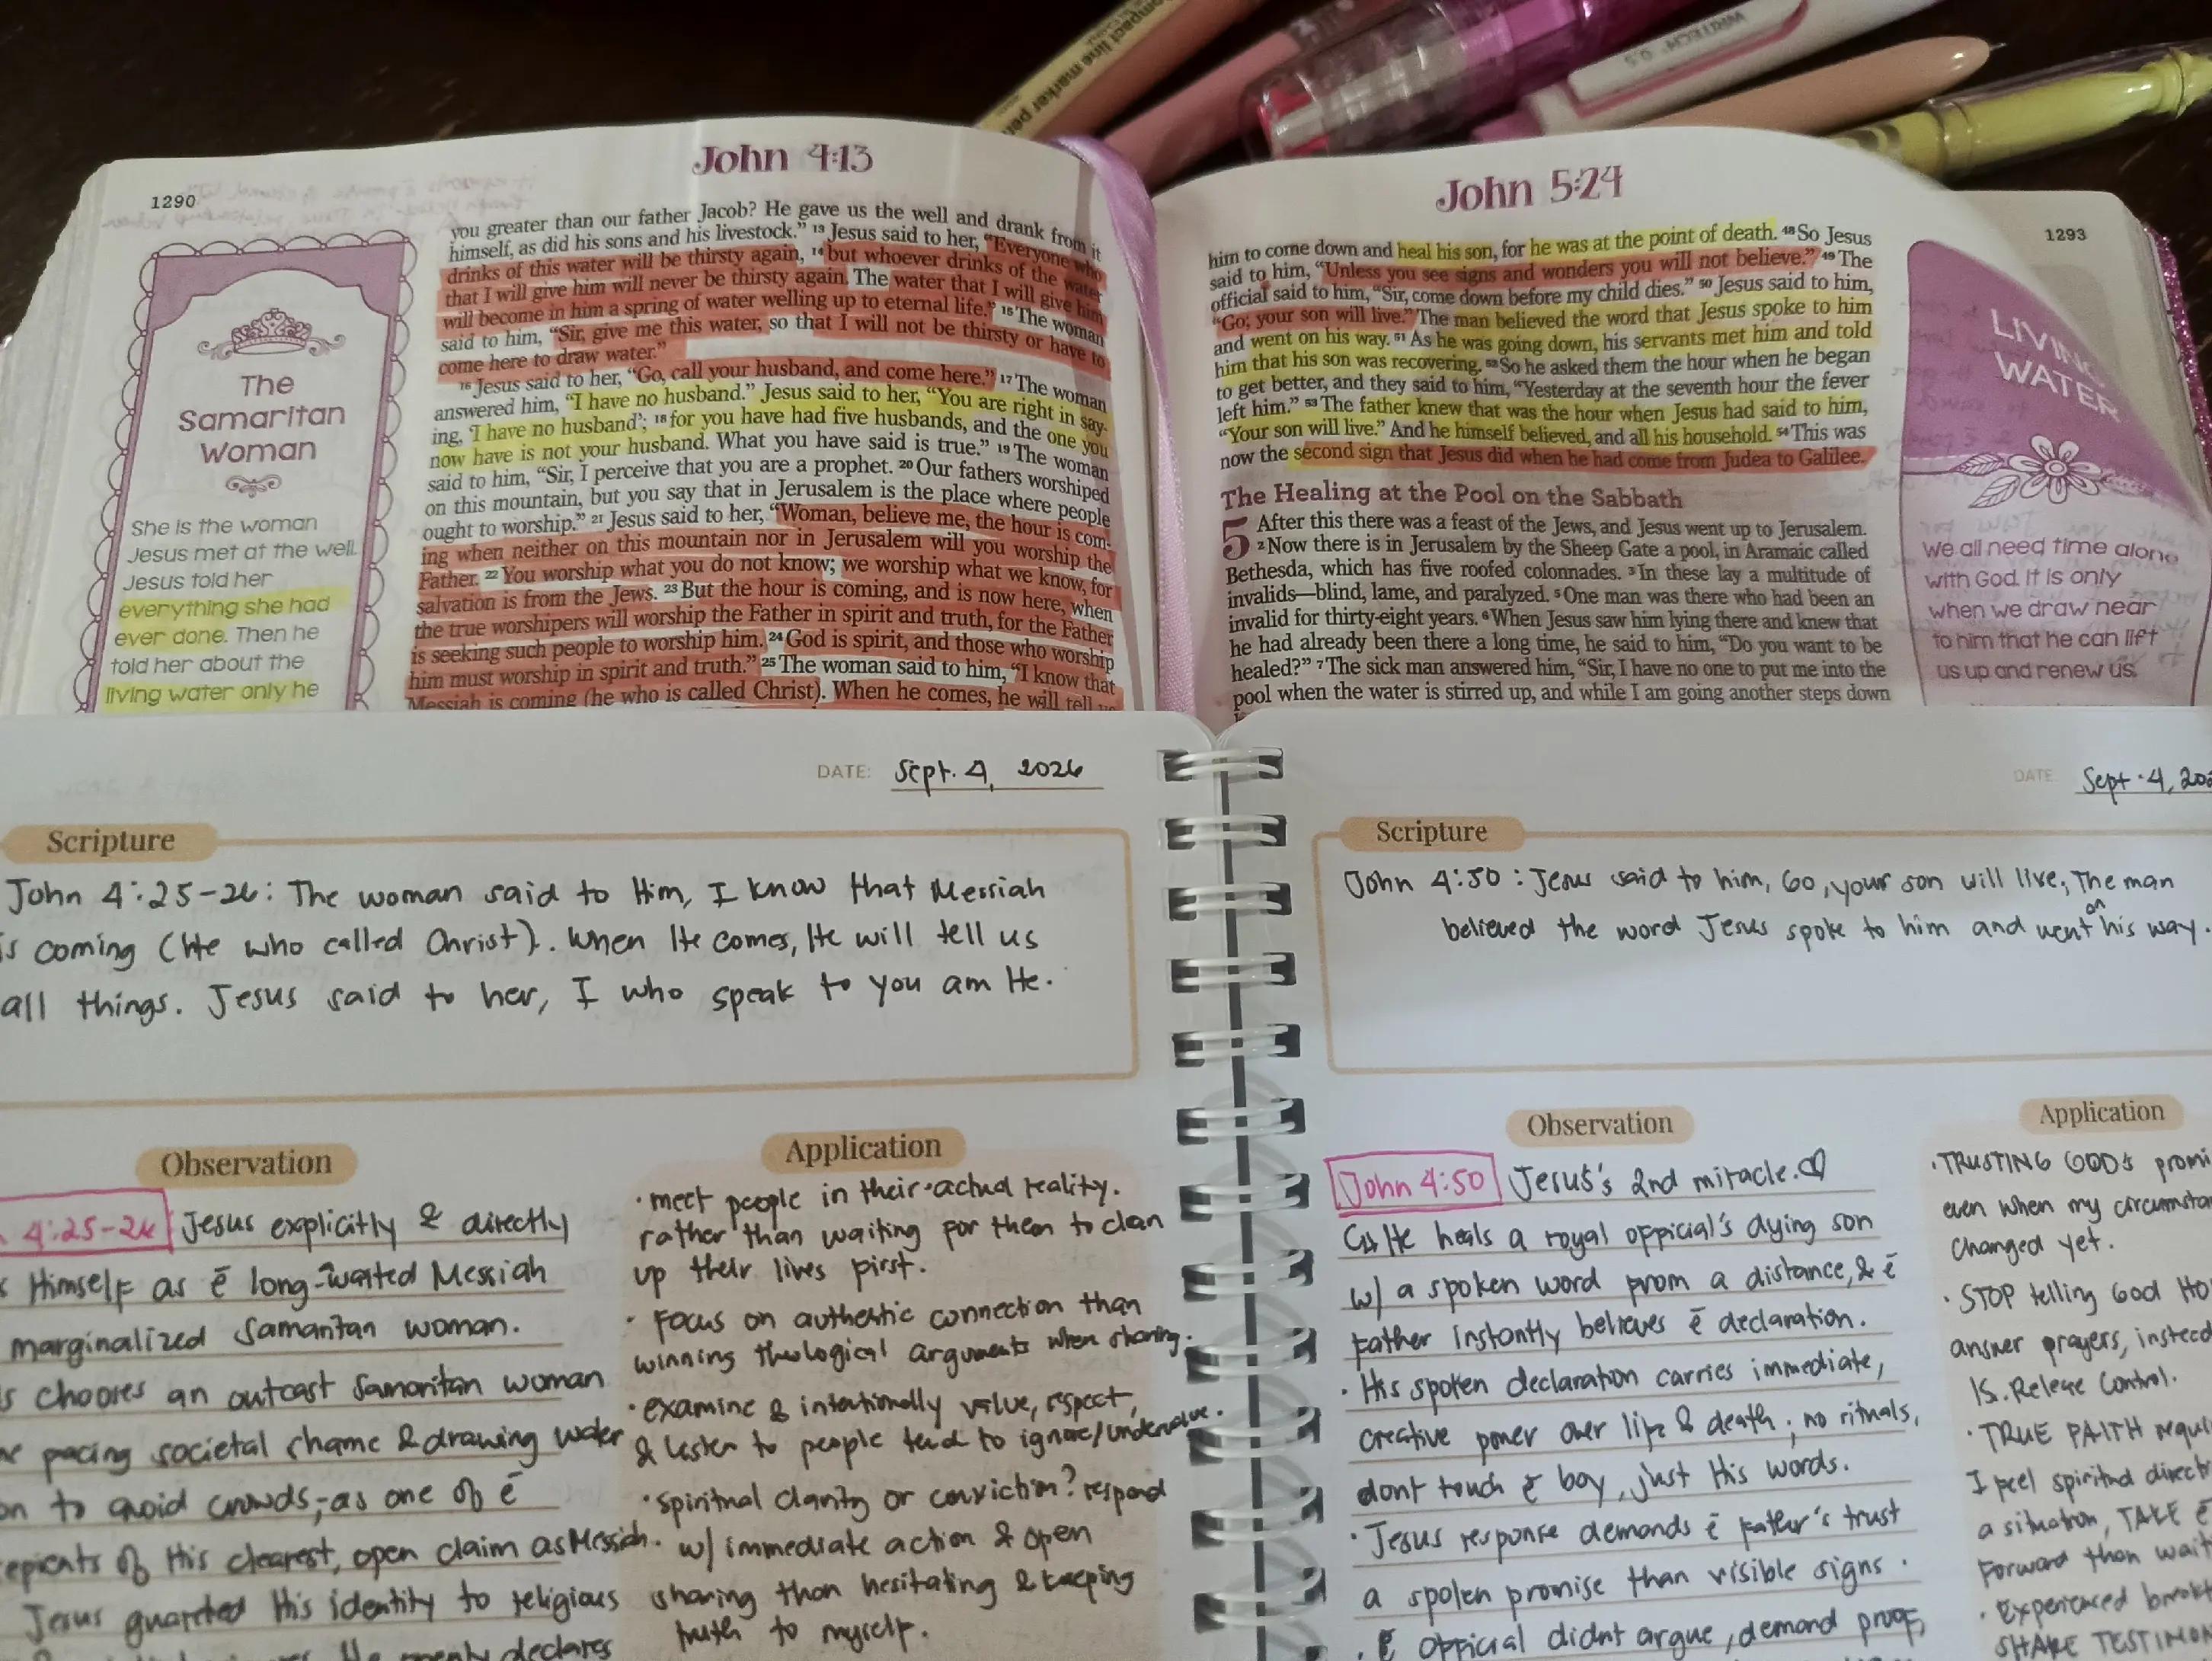 compact line marker pen
John 4:13
1290
you greater than our father Jacob? He gave us the well and drank from it
himself, as did his sons and his livestock.” 13 Jesus said to her, “Everyone who
drinks of this water will be thirsty again, 14 but whoever drinks of the water
that I will give him will never be thirsty again. The water that I will give him
will become in him a spring of water welling up to eternal life.” 15 The woman
said to him, “Sir, give me this water, so that I will not be thirsty or have to
come here to draw water.”
16 Jesus said to her, “Go, call your husband, and come here.” 17 The woman
answered him, “I have no husband.” Jesus said to her, “You are right in say-
ing, ‘I have no husband’; 18 for you have had five husbands, and the one you
now have is not your husband. What you have said is true.” 19 The woman
said to him, “Sir, I perceive that you are a prophet. 20 Our fathers worshiped
on this mountain, but you say that in Jerusalem is the place where people
ought to worship.” 21 Jesus said to her, “Woman, believe me, the hour is com-
ing when neither on this mountain nor in Jerusalem will you worship the
Father. 22 You worship what you do not know; we worship what we know, for
salvation is from the Jews. 23 But the hour is coming, and is now here, when
the true worshipers will worship the Father in spirit and truth, for the Father
is seeking such people to worship him. 24 God is spirit, and those who worship
him must worship in spirit and truth.” 25 The woman said to him, “I know that
Messiah is coming (he who is called Christ). When he comes, he will tell us
The
Samaritan
Woman
She is the woman
Jesus met at the well.
Jesus told her
everything she had
ever done. Then he
told her about the
living water only he
John 5:24
1293
him to come down and heal his son, for he was at the point of death. 48 So Jesus
said to him, “Unless you see signs and wonders you will not believe.” 49 The
official said to him, “Sir, come down before my child dies.” 50 Jesus said to him,
“Go; your son will live.” The man believed the word that Jesus spoke to him
and went on his way. 51 As he was going down, his servants met him and told
him that his son was recovering. 52 So he asked them the hour when he began
to get better, and they said to him, “Yesterday at the seventh hour the fever
left him.” 53 The father knew that was the hour when Jesus had said to him,
“Your son will live.” And he himself believed, and all his household. 54 This was
now the second sign that Jesus did when he had come from Judea to Galilee.
The Healing at the Pool on the Sabbath
5 After this there was a feast of the Jews, and Jesus went up to Jerusalem.
2 Now there is in Jerusalem by the Sheep Gate a pool, in Aramaic called
Bethesda, which has five roofed colonnades. 3 In these lay a multitude of
invalids—blind, lame, and paralyzed. 5 One man was there who had been an
invalid for thirty-eight years. 6 When Jesus saw him lying there and knew that
he had already been there a long time, he said to him, “Do you want to be
healed?” 7 The sick man answered him, “Sir, I have no one to put me into the
pool when the water is stirred up, and while I am going another steps down
LIVING
WATER
We all need time alone
with God. It is only
when we draw near
to him that he can lift
us up and renew us.
DATE: Sept. 4, 2026
Scripture
John 4:25-26: The woman said to Him, I know that Messiah
is coming (He who called Christ). When He comes, He will tell us
all things. Jesus said to her, I who speak to you am He.
Observation
4:25-26 Jesus explicitly & directly
Himself as ē long-waited Messiah
marginalized Samaritan woman.
chooses an outcast Samaritan woman
facing societal shame & drawing water
to avoid crowds, as one of ē
of His clearest, open claim as Messiah.
Jesus guarded His identity to religious
declares
Application
• meet people in their actual reality.
rather than waiting for them to clean
up their lives first.
• Focus on authentic connection than
winning theological arguments when sharing.
• examine & intentionally value, respect,
& listen to people tend to ignore/undervalue.
• spiritual clarity or conviction? respond
w/ immediate action & open
sharing than hesitating & keeping
truth to myself.
DATE Sept. 4, 202
Scripture
John 4:50: Jesus said to him, Go, your son will live; The man
believed the word Jesus spoke to him and went on his way.
Observation
John 4:50 Jesus's 2nd miracle. ♡
He heals a royal official's dying son
w/ a spoken word from a distance, & ē
father instantly believes ē declaration.
• His spoken declaration carries immediate,
creative power over life & death; no rituals,
dont touch ē boy, just His words.
• Jesus response demands ē father's trust
a spoken promise than visible signs.
• ē official didnt argue, demand proof,
Application
• TRUSTING GOD's promi
even when my circumstan
changed yet.
• STOP telling God HO
answer prayers, instead
IS. Release Control.
• TRUE FAITH requi
I feel spiritual direct
a situation, TAKE ē
Forward than wait
• Experienced break
SHARE TESTIMON